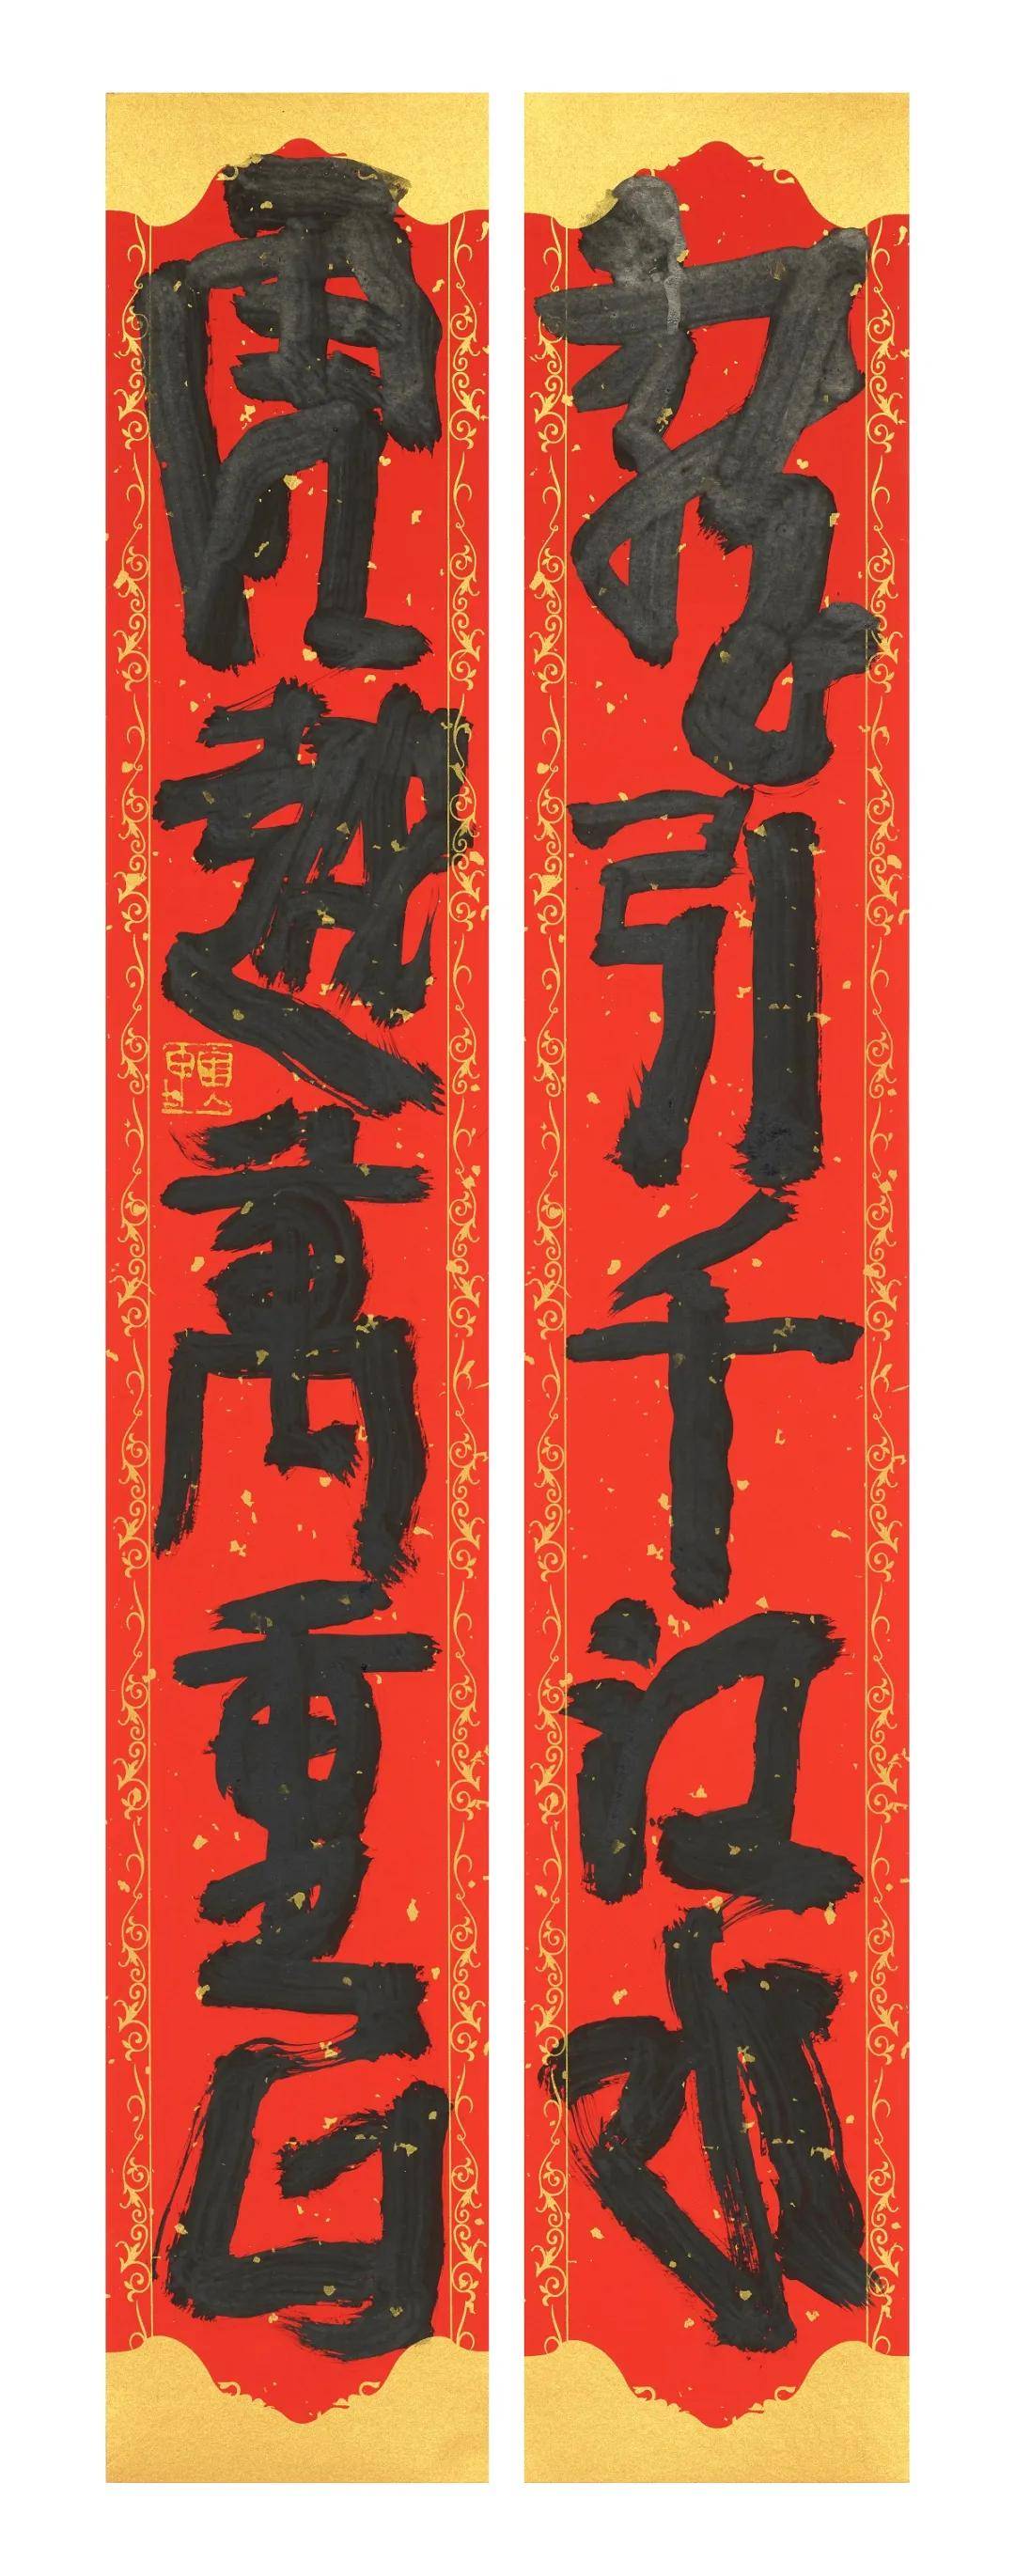 龍引千江水
虎越萬重山